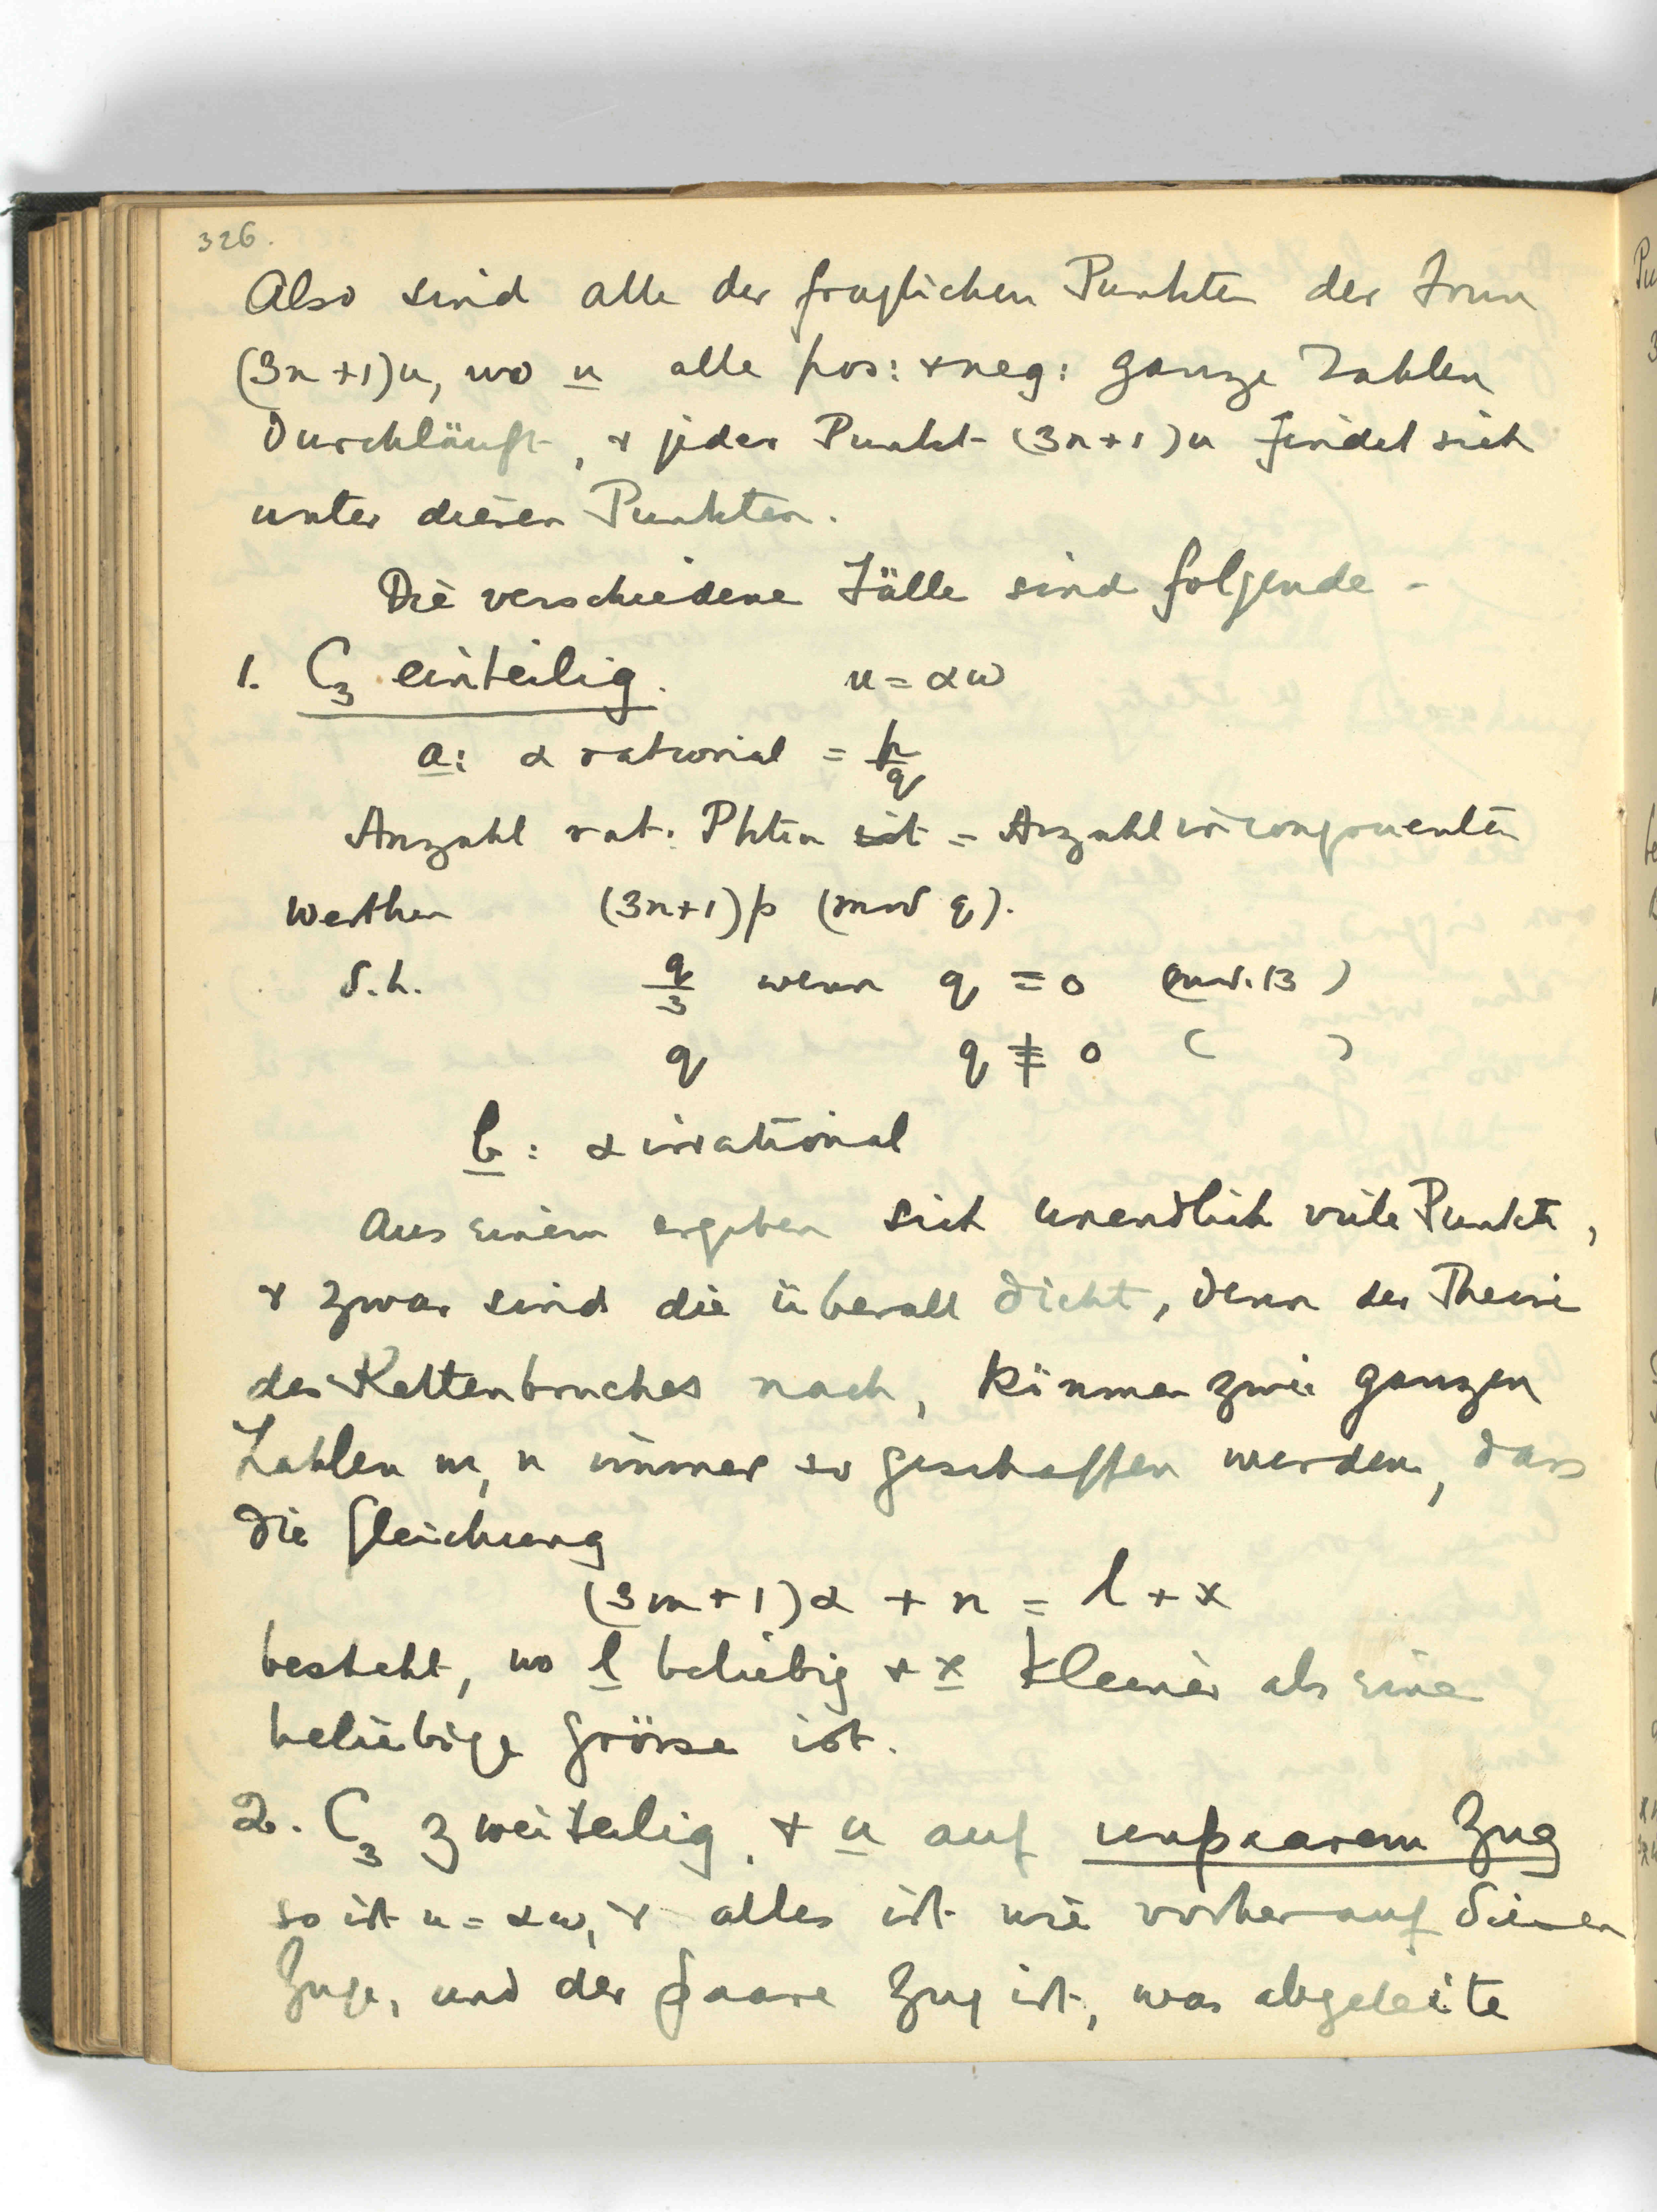 326.
Also sind alle der fraglichen Punkten der Form
(3n+1)u, wo u alle pos: + neg: ganze Zahlen
durchläuft, + jeder Punkt (3n+1)u findet sich
unter diesen Punkten.
Die verschiedene Fälle sind folgende -
1. C₃ einteilig. u = αω
a: α rational = p/q
Anzahl rat. Pkten ist = Anzahl incongruenten
Werthen (3n+1)p (mod q).
d.h. q/3 wenn q ≡ 0 (mod. 3)
q q ≢ 0 ( )
b: α irrational
Aus einem ergeben sich unendlich viele Punkte,
+ zwar sind die überall dicht, denn der Theorie
des Kettenbruches nach, können zwei ganzen
Zahlen m, n immer so geschaffen werden, dass
die Gleichung
(3m+1)α + n = l + x
besteht, wo l beliebig + x kleiner als eine
beliebige Grösse ist.
2. C₃ zweiteilig, + u auf unpaarem Zug
so ist u = αω, + alles ist wie vorher auf diesen
Zuge, und der paare Zug ist, was abgeleite